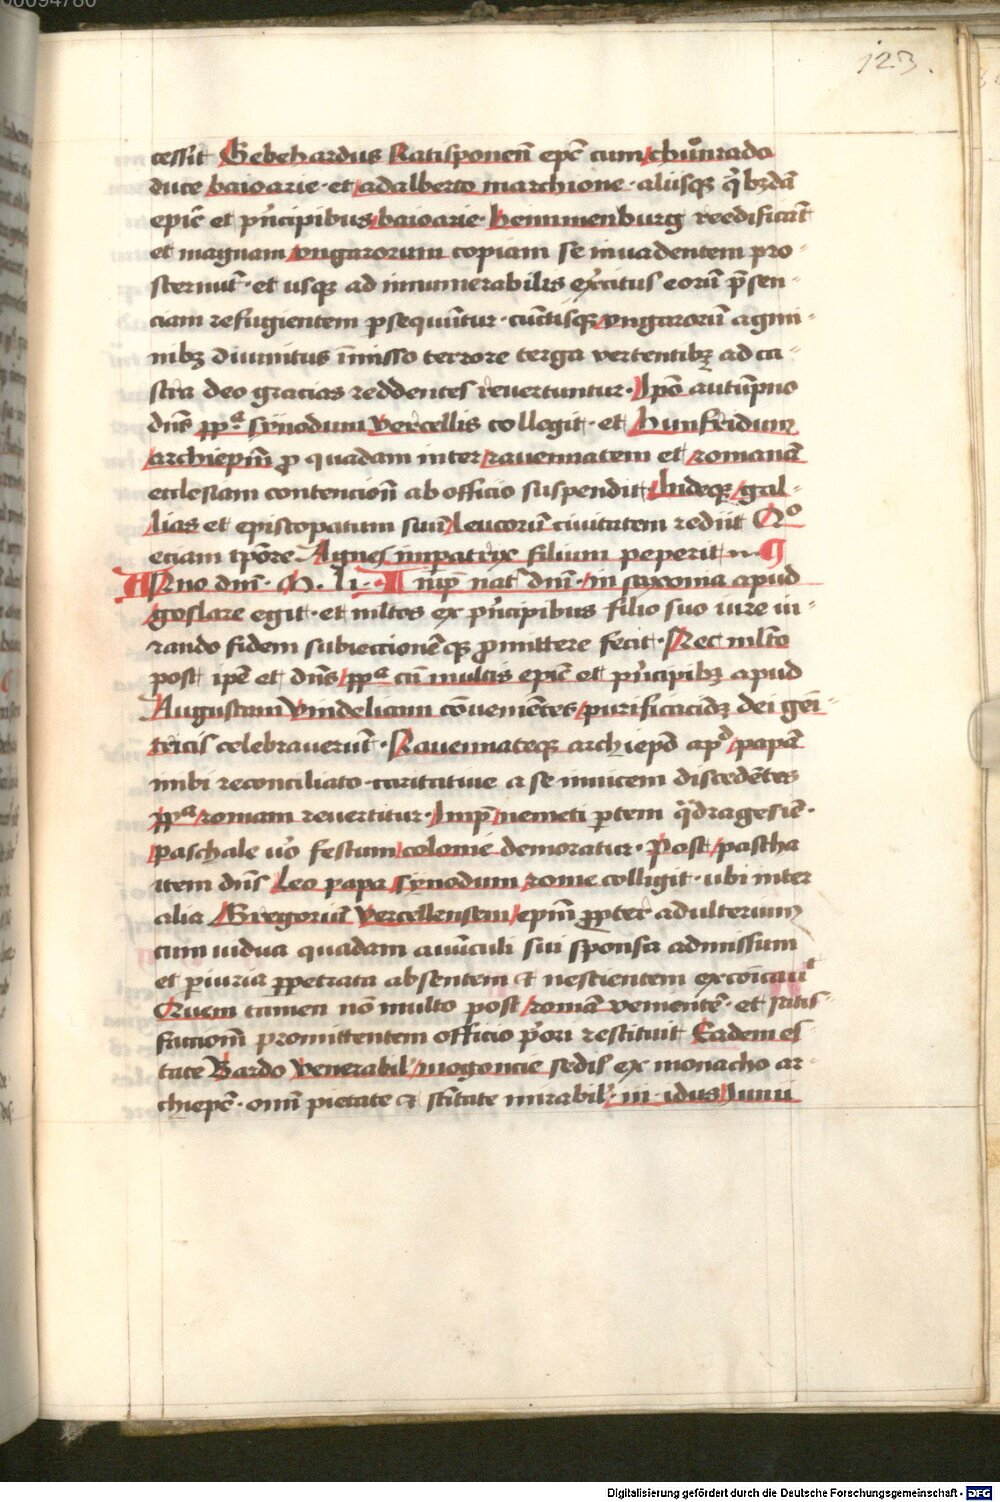 00094780
123.
cessit Gebehardus Ratisponen̄ epc̄ cum chůnrado
duce baioarie · et adalberto marchione · aliisqꝫ qͥbꝫdā
epic̄ et pn̄cipibus baioarie · hemmenburg reedificāt
et magnam vngarorum copiam se inuadentem pro-
sternūt · et usqꝫ ad innumerabilis ex̄citus eorū p̄sen-
ciam refugientem ꝑsequūtur · cūctisqꝫ vngarorū agmi-
nibꝫ diuinitus īmisso terrore terga vertentibꝫ ad ca-
stra deo gracias reddentes reuertuntur · Ipō autūpno
dn̄s ꝑpᵃ synodum Vercellis collegit · et hunfridum
archiepm̄ ꝓ quadam inter rauennatem et romanā
ecclesiam contencion̄ ab officio suspendit hideqꝫ gal-
lias et episcopatum suū leucorū ciuitatem rediit Qͦ
eciam tp̄ore Agnes impatrix filium peperit ··
Anno dnī · M · li · Imp̄ nat̄ dnī · in saxonia apud
goslare egit · et ml̄tos ex pn̄cipibus filio suo iure iu-
rando fidem subieccionēqꝫ ꝓmittere fecit · Nec ml̄to
post ip̄e et dn̄s ꝑpᵃ cū multis epic̄ et pn̄cipibꝫ apud
Augustam Vindelicam cōueniētes purificacōꝫ dei gēi-
tricis celebrauerūt · Rauennateqꝫ archiepō ap̄d papā
inibi reconciliato · caritatiue a se inuicem discedētes
ꝑpᵃ romam reuertitur · Imp̄ nemeti ꝑtem qͣdragesie̅ ·
paschale uo̅ festum colonie demoratur · Post pascha
item dn̄s Leo papa synodum rome colligit · ubi inter
alia Gregoriū Vercellensem epm̄ ꝓpter adulterium
cum uidua quadam auūculi sui sponsa admissum
et ꝑiuria ꝑpetrata absentem ⁊ nescientem excōicauͭ
Quem tamen nō multo post romā venientē · et satis-
faccionē promittentem officio p̄ori restituit Eadem es-
tate Bardo venerabil̓ mogoncie sedis ex monacho ar-
chiepc̄ · omī pietate ⁊ sc̄itate mirabil̓ · iii · idus Iunii
Digitalisierung gefördert durch die Deutsche Forschungsgemeinschaft - DFG